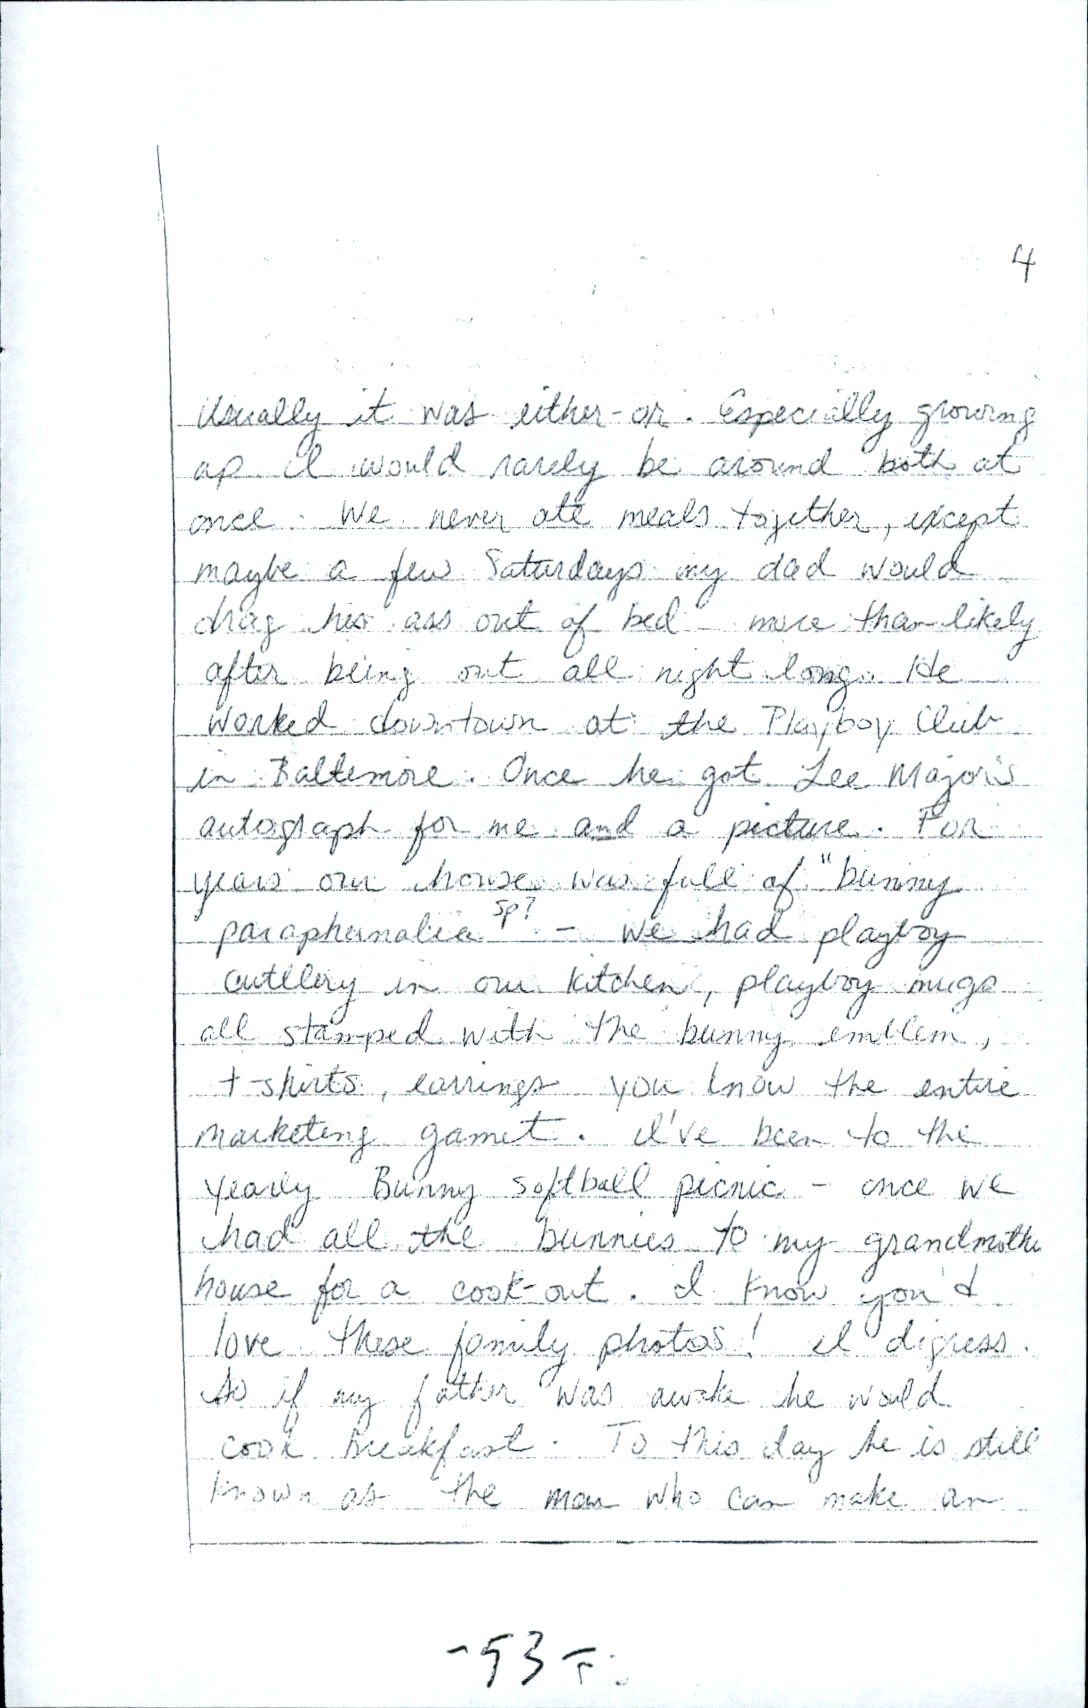 4
Usually it was either-or. Especially growing
up I would rarely be around both at
once. We never ate meals together, except
maybe a few Saturdays my dad would
drag his ass out of bed - more than likely
after being out all night long. He
worked downtown at the Playboy Club
in Baltimore. Once he got Lee Major's
autograph for me and a picture. For
years our house was full of "bunny
paraphernalia sp? - we had playboy
cutlery in our kitchen, playboy mugs
all stamped with the bunny emblem,
t-shirts, earrings you know the entire
marketing gamet. I've been to the
yearly Bunny softball picnic - once we
had all the bunnies to my grandmothe
house for a cook-out. I know you'd
love these family photos! I digress.
So if my father was awake he would
cook breakfast. To this day he is still
known as the man who can make an
-93-